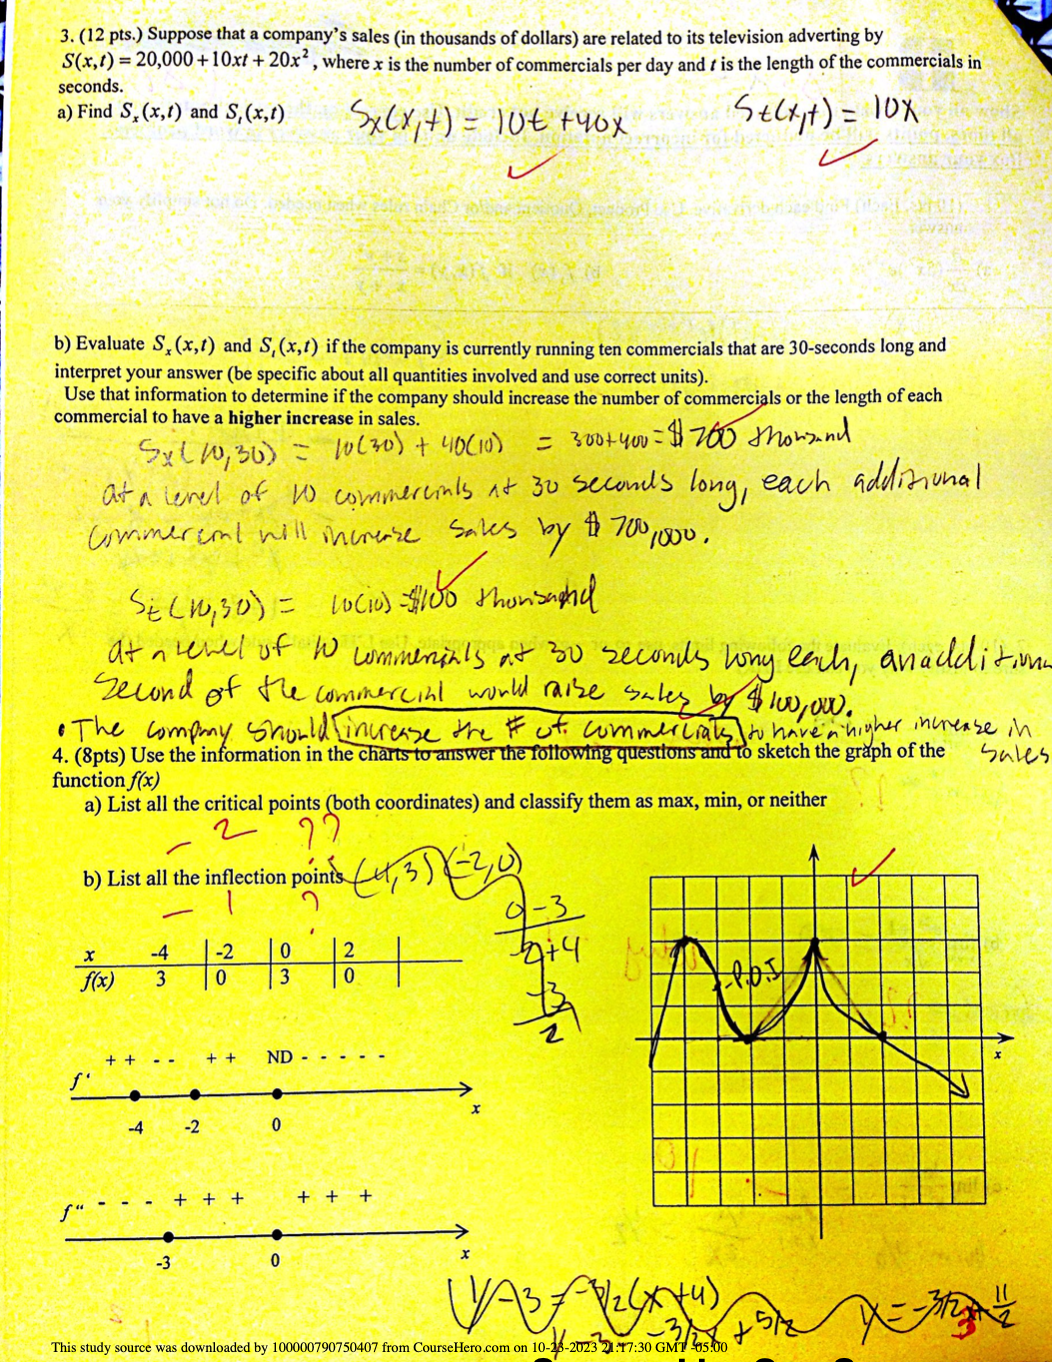 3. (12 pts.) Suppose that a company's sales (in thousands of dollars) are related to its television adverting by
S(x,t) = 20,000 + 10xt + 20x², where x is the number of commercials per day and t is the length of the commercials in
seconds.
a) Find Sₓ(x,t) and Sₜ(x,t)
Sx(x,t) = 10t + 40x
St(x,t) = 10x
b) Evaluate Sₓ(x,t) and Sₜ(x,t) if the company is currently running ten commercials that are 30-seconds long and
interpret your answer (be specific about all quantities involved and use correct units).
Use that information to determine if the company should increase the number of commercials or the length of each
commercial to have a higher increase in sales.
Sx(10,30) = 10(30) + 40(10) = 300+400 = $700 thousand
at a level of 10 commercials at 30 seconds long, each additional
commercial will increase sales by $700,000.
St(10,30) = 10(10) = $100 thousand
at a level of 10 commercials at 30 seconds long each, an addition
second of the commercial would raise sales by $100,000.
• The company should increase the # of commercials to have a higher increase in
sales
4. (8pts) Use the information in the charts to answer the following questions and to sketch the graph of the
function f(x)
a) List all the critical points (both coordinates) and classify them as max, min, or neither
-2 ??
b) List all the inflection points (-4,3) (-2,0)
-1 ?
0-3
-2+4
-3
2
x -4 -2 0 2
f(x) 3 0 3 0
P.O.I
x
+ + - - + + ND - - - - -
f'
x
-4 -2 0
f" - - - + + + + + +
x
-3 0
y-3 = -3/2(x+4)
This study source was downloaded by 100000790750407 from CourseHero.com on 10-23-2023 21:17:30 GMT -05:00